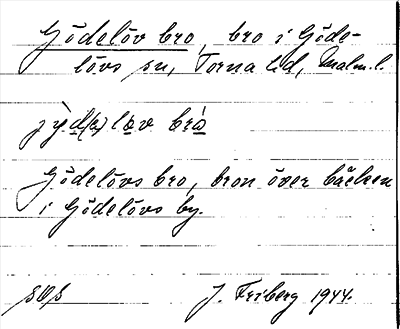 Gödelöv bro, bro i Göde-
lövs sn, Torna hd, Malm. l.
Gödelövs bro, bron över bäcken
i Gödelövs by.
J. Friberg 1944.